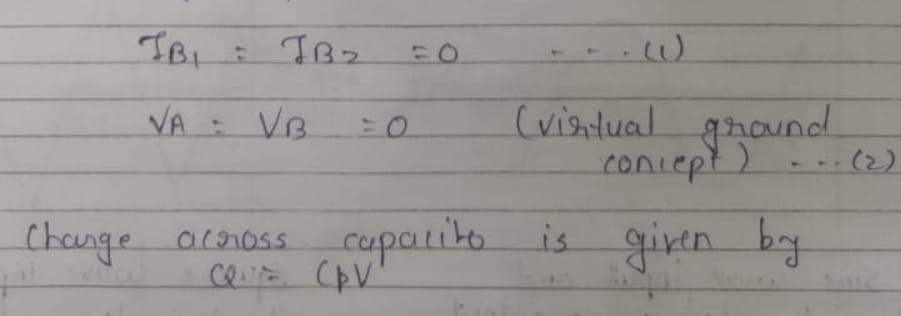 IB1 = IB2 = 0 - - - . (1)
VA = VB = 0 (virtual ground
concept) - - - . (2)
Charge across capacito is given by
Q = CpV